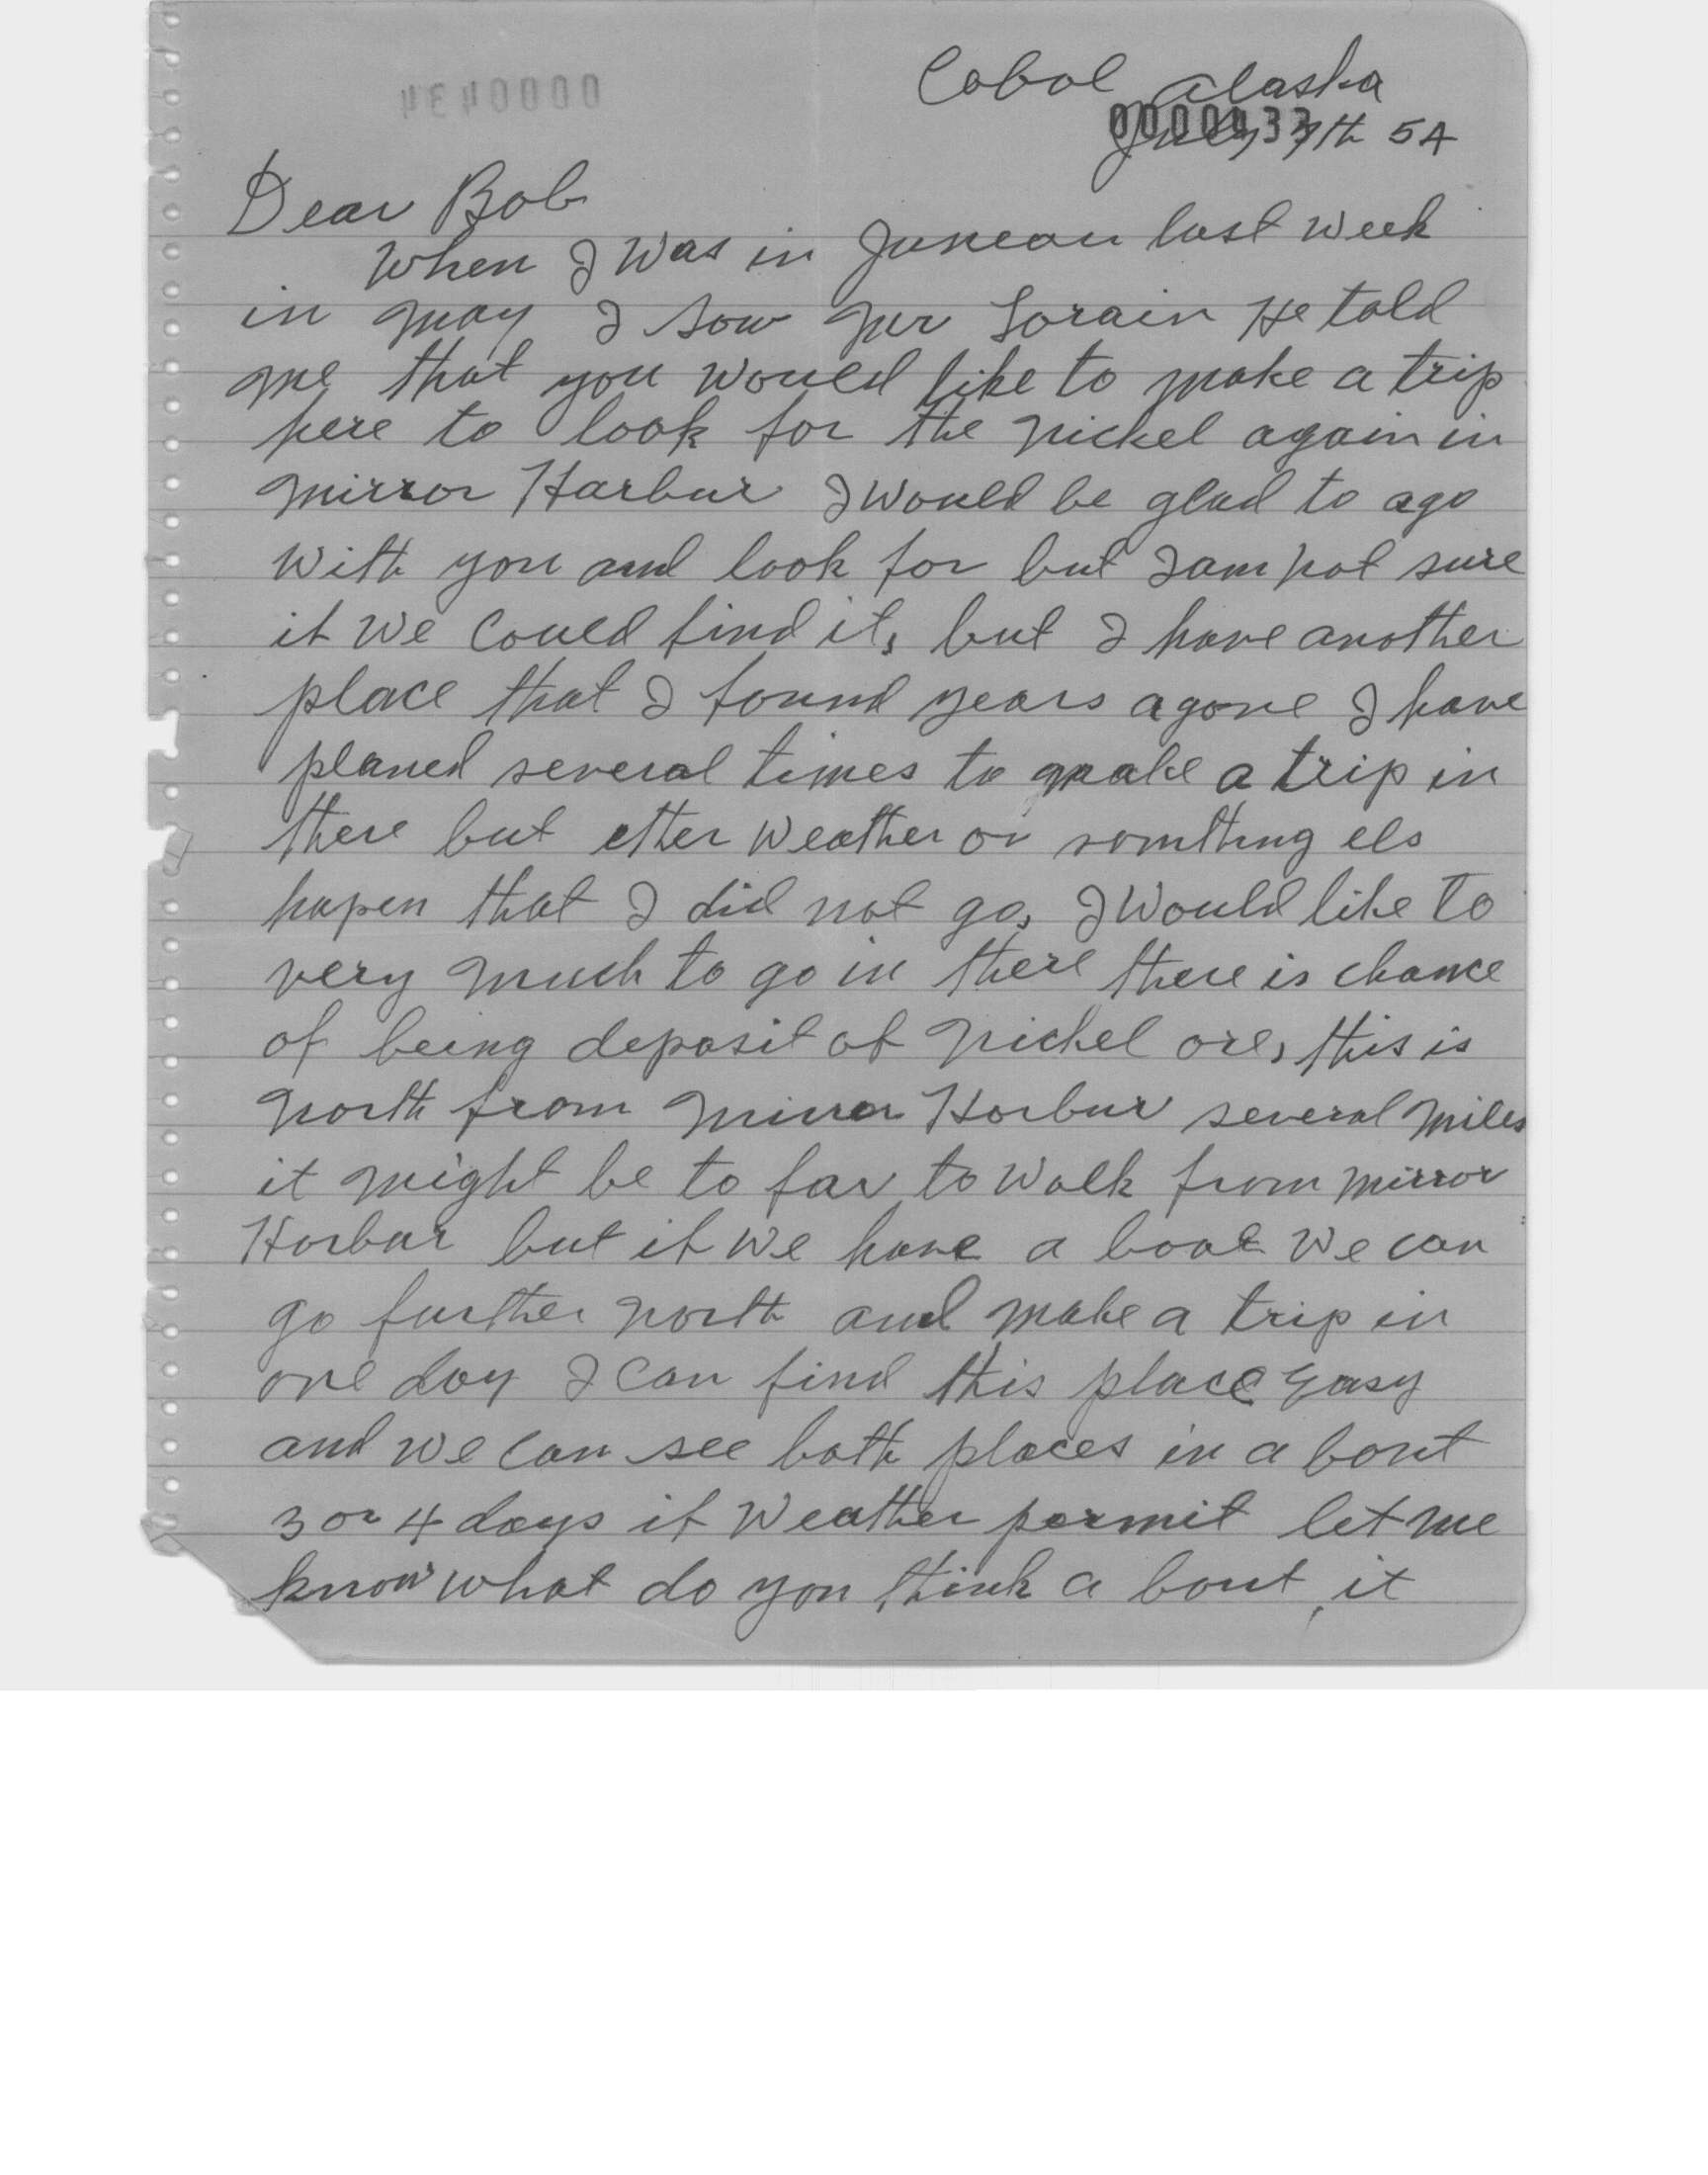 Cobol Alaska
0000433
July 7th 54
Dear Bob
When I was in Juneau last week
in may I sow mr Lorain He told
me that you would like to make a trip
here to look for the nickel again in
mirror Harbur I would be glad to ago
with you and look for but I am not sure
if we could find it, but I have another
place that I found years agone I have
planed several times to make a trip in
there but etter weather or somthing els
hapen that I did not go, I would like to
very much to go in there there is chance
of being deposit of nickel ore, this is
north from mirror Horbur several miles
it might be to far to walk from mirror
Horbur but if we have a boat we can
go further north and make a trip in
one day I can find this place easy
and we can see both places in a bout
3 or 4 days if weather permit let me
know what do you think a bout it